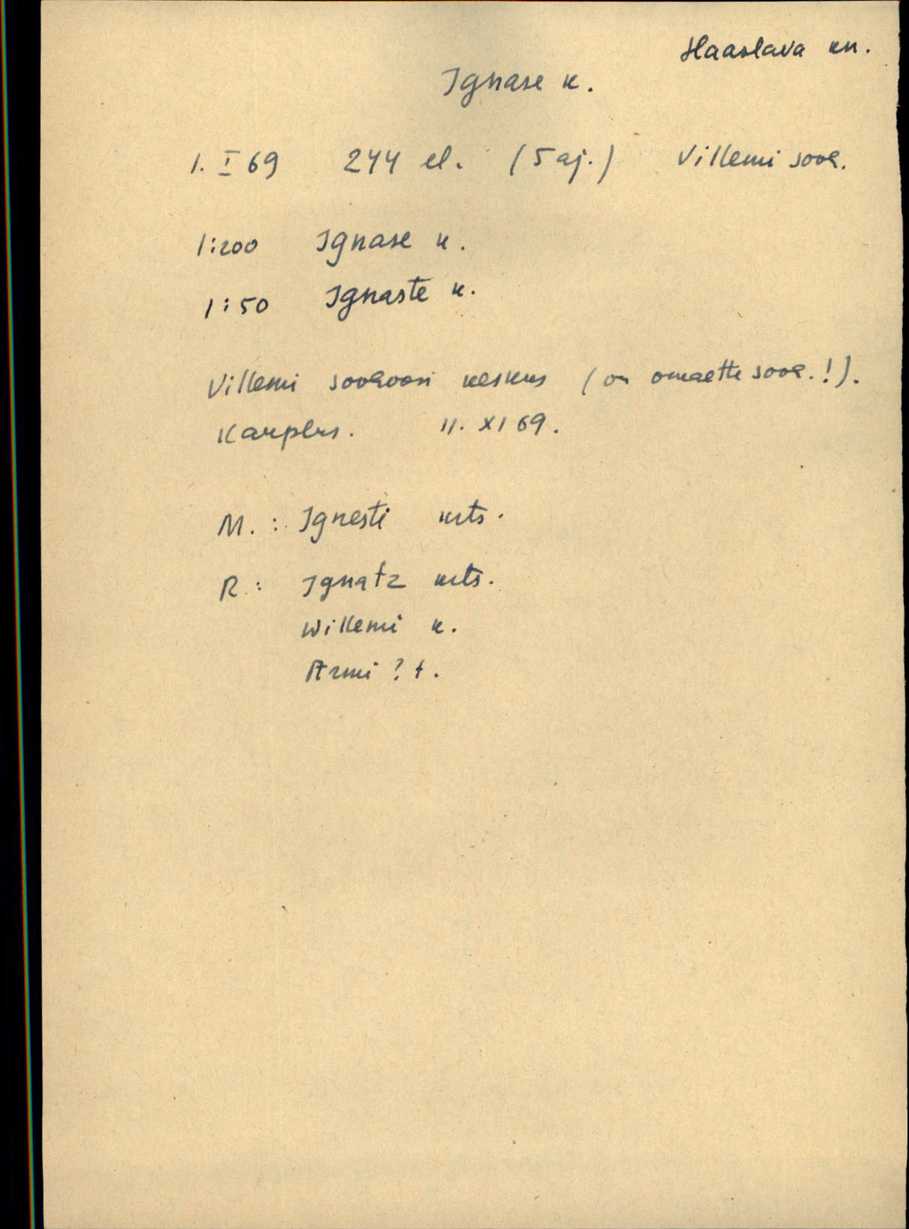 Haaslava kn.
Ignase k.
1. I 69 244 el. (5 aj.) Villemi sovh.
1:200 Ignase k.
1:50 Ignaste k.
Villemi sovhoosi keskus (on omaette sovh.!).
11. XI 69.
M.: Ignesti krts.
R.: Ignatz krts.
Willemi k.
Armi ? t.